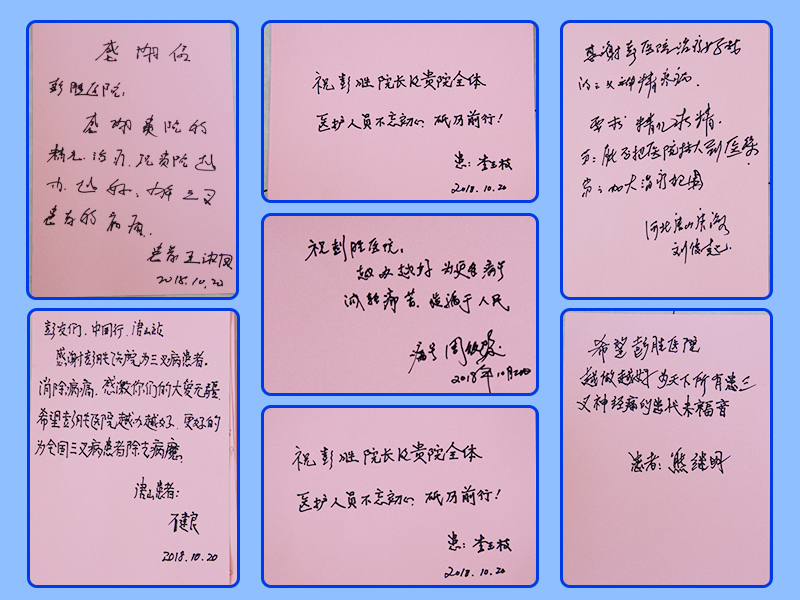 感谢信
彭胜医院:
感谢贵院的
精心治疗,祝贵院越
办越好,为广大三叉
患者的病痛。
患者 王淑
2018.10.20
彭友们,中国行,唐山站
感谢彭胜医院为三叉病患者
消除病痛,感激你们的大爱无疆
希望彭胜医院越办越好,更好的
为全国三叉病患者除去病魔。
唐山患者:
建良
2018.10.20
祝彭胜院长及贵院全体
医护人员不忘初心、砥砺前行!
患:李玉枝
2018.10.20
祝彭胜医院:
越办越好 为更多病号
减轻痛苦,造福于人民
病号 周
2018年10月20日
祝彭胜院长及贵院全体
医护人员不忘初心、砥砺前行!
患:李玉枝
2018.10.20
感谢彭医院治疗好我
的三叉神精疼病.
要求 精几求精.
另:能否把医院扩大到医
加大治疗范围
河北唐山
刘俊起
希望彭胜医院
越做越好 为天下所有患三
叉神经痛的患代来福音
患者:熊继明